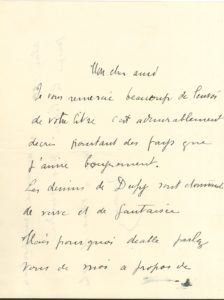 Mon cher ami
Je vous remercie beaucoup de l'envoi
de votre livre c'est admirablement
décris pourtant des pays que
j'aime
Les dessins de Dufy sont
de verve et de fantaisie
Mais pourquoi diable parlez
vous de moi a propos de